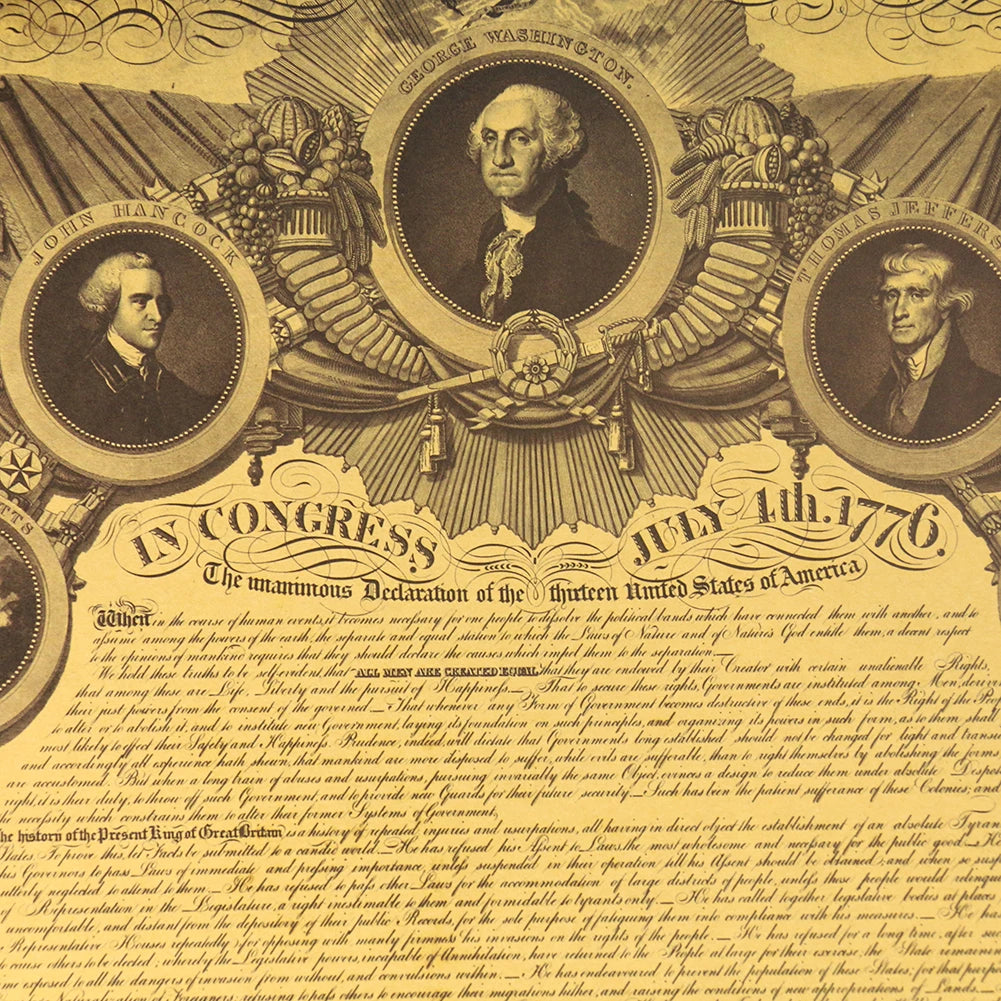 GEORGE WASHINGTON.
JOHN HANCOCK
THOMAS JEFFERS
TTS
IN CONGRESS JULY 4th. 1776.
The unanimous Declaration of the thirteen United States of America
When in the course of human events, it becomes necessary for one people to dissolve the political bands which have connected them with another, and to
assume among the powers of the earth, the separate and equal station to which the Laws of Nature and of Nature's God entitle them, a decent respect
to the opinions of mankind requires that they should declare the causes which impel them to the separation.—
We hold these truths to be self-evident, that ALL MEN ARE CREATED EQUAL, that they are endowed by their Creator with certain unalienable Rights,
that among these are Life, Liberty and the pursuit of Happiness.— That to secure these rights, Governments are instituted among Men, deriv
their just powers from the consent of the governed.— That whenever any Form of Government becomes destructive of these ends, it is the Right of the Peo
to alter or to abolish it, and to institute new Government, laying its foundation on such principles, and organizing its powers in such form, as to them shall
most likely to effect their Safety and Happiness. Prudence, indeed, will dictate that Governments long established should not be changed for light and transie
and accordingly all experience hath shewn, that mankind are more disposed to suffer, while evils are sufferable, than to right themselves by abolishing the forms
are accustomed. But when a long train of abuses and usurpations, pursuing invariably the same Object, evinces a design to reduce them under absolute Despot
right, it is their duty, to throw off such Government, and to provide new Guards for their future security.— Such has been the patient sufferance of these Colonies; and
the necessity which constrains them to alter their former Systems of Government.
he history of the Present King of Great Britain is a history of repeated injuries and usurpations, all having in direct object the establishment of an absolute Tyran
States. To prove this, let Facts be submitted to a candid world.— He has refused his Assent to Laws, the most wholesome and necessary for the public good.— He
his Governors to pass Laws of immediate and pressing importance, unless suspended in their operation till his Assent should be obtained; and when so susp
utterly neglected to attend to them.— He has refused to pass other Laws for the accommodation of large districts of people, unless those people would relinqu
of Representation in the Legislature, a right inestimable to them and formidable to tyrants only.— He has called together legislative bodies at places
uncomfortable, and distant from the depository of their public Records, for the sole purpose of fatiguing them into compliance with his measures.— He has
Representative Houses repeatedly, for opposing with manly firmness his invasions on the rights of the people.— He has refused for a long time, after suc
to cause others to be elected; whereby the Legislative powers, incapable of Annihilation, have returned to the People at large for their exercise, the State remainin
me exposed to all the dangers of invasion from without, and convulsions within.— He has endeavoured to prevent the population of these States; for that purpos
Naturalization of Foreigners; refusing to pass others to encourage their migrations hither, and raising the conditions of new appropriations of Lands.—